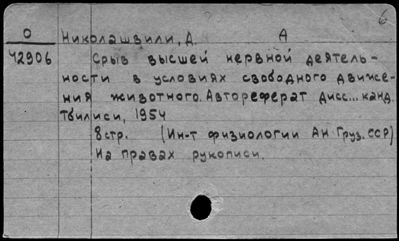 6
О Николашвили, Д. А
42906 Срыв высшей нервной деятель-
ности в условиях свободного движе-
ния животного. Автореферат дисс... канд.
Тбилиси, 1954
8 стр. (Ин-т физиологии АН Груз. ССР)
На правах рукописи.